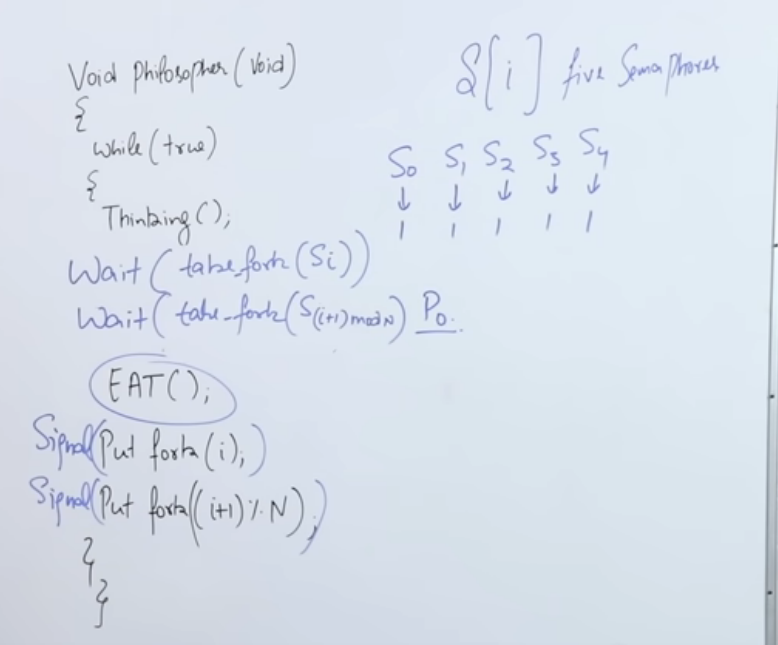 Void Philosopher(Void)
{
while(true)
{
Thinking();
Wait(take_fork(Si))
Wait(take_fork(S(i+1)modN) P0.
EAT();
Signal(Put fork(i);)
Signal(Put fork((i+1)%N);)
}
}
S[i] five Semaphores
S0 S1 S2 S3 S4
↓ ↓ ↓ ↓ ↓
1 1 1 1 1